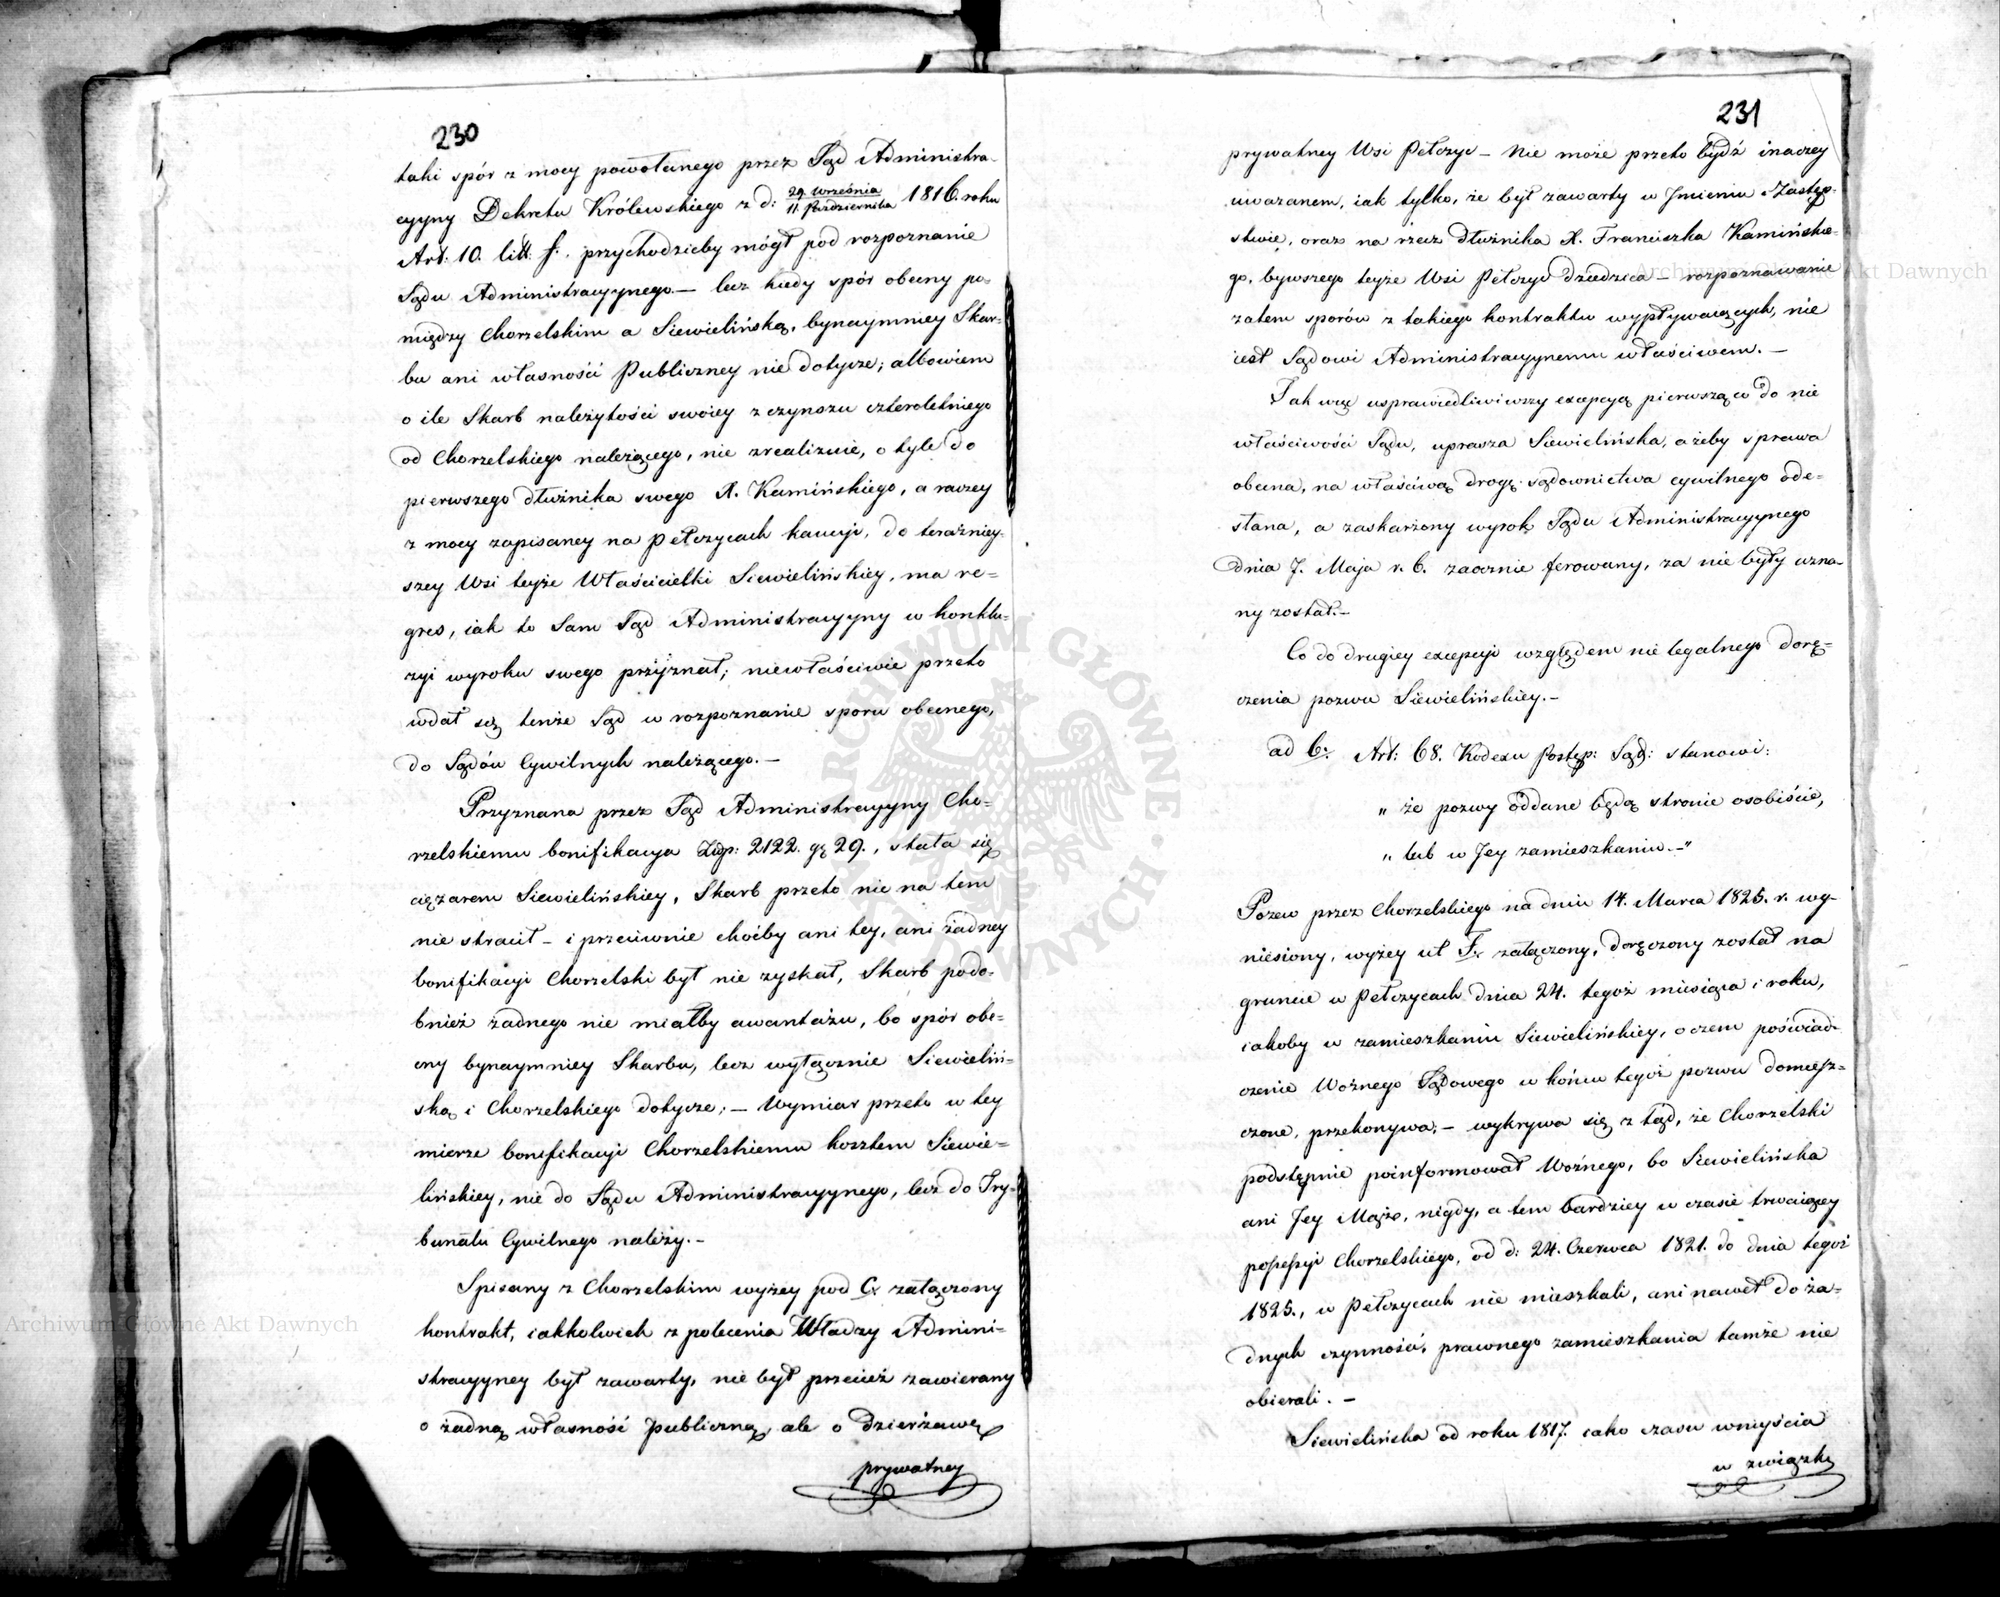 230
taki spór z mocy powołanego przez Sąd Administra-
cyjny Dekretu Królewskiego z d: 29. Września / 11. Października 1816. roku
Art: 10. litt. f. przychodzićby mógł pod rozpoznanie
Sądu Administracyjnego. — lecz kiedy spór obecny po-
między Chorzelskim a Siewielińską, bynaymniey Skar-
bu ani własności Publiczney nie dotycze; albowiem
o ile Skarb należytości swoiey z czynszu czteroletniego
od Chorzelskiego należącego, nie zrealizuie, o tyle do
pierwszego dłużnika swego X. Kamińskiego, a raczey
z mocy zapisaney na Pełczycach kaucyi, do teraźniey-
szey Wsi teyże Właścicielki Siewielińskiey, ma re-
gres, iak to Sam Sąd Administracyjny w konklu-
zyi wyroku swego przyznał; niewłaściwie przeto
wdał się tenże Sąd w rozpoznanie sporu obecnego,
do Sądów Cywilnych należącego. —
Przyznana przez Sąd Administracyjny Cho-
rzelskiemu bonifikacya Złp: 2122. gr 29., stała się
ciężarem Siewielińskiey, Skarb przeto nic na tem
nie stracił — i przeciwnie choćby ani tey, ani żadney
bonifikacyi Chorzelski był nie zyskał, Skarb podo-
bnież żadnego nie miałby awantażu, bo spór obe-
cny bynaymniey Skarbu, lecz wyłącznie Siewieliń-
ską i Chorzelskiego dotycze; — Wymiar przeto w tey
mierze bonifikacyi Chorzelskiemu kosztem Siewie-
lińskiey, nie do Sądu Administracyjnego, lecz do Try-
bunału Cywilnego należy. —
Spisany z Chorzelskim wyżey pod C. załączony
kontrakt, iakkolwiek z polecenia Władzy Admini-
stracyjney był zawarty, nie był przecież zawierany
o żadną własność publiczną, ale o dzierżawę
prywatney
231
prywatney Wsi Pełczyc — Nie może przeto bydź inaczey
uważanem, iak tylko, że był zawarty w Jmieniu Zastęp-
stwie, oraz na rzecz dłużnika X. Franciszka Kamińskie-
go, bywszego teyże Wsi Pełczyc Dziedzica — rozpoznawanie
zatem sporów z takiego kontraktu wypływaiących, nie
iest Sądowi Administracyjnemu właściwem. —
Tak więc usprawiedliwiwszy excepcyą pierwszą co do nie
właściwości Sądu, uprasza Siewielińska, ażeby sprawa
obecna, na właściwą drogę sądownictwa cywilnego ode-
słana, a zaskarżony wyrok Sądu Administracyjnego
dnia 7. Maja r. b. zaocznie ferowany, za nie były uzna-
ny został. —
Co do drugiey excepcyi względem nie legalnego dorę-
czenia pozwu Siewielińskiey. —
ad b. Art: 68. Kodexu Postęp: Sąd: stanowi:
„ że pozwy oddane będą stronie osobiście,
„ lub w Jey zamieszkaniu. — "
Pozew przez Chorzelskiego na dniu 14. Marca 1825. r. wy-
niesiony, wyżey ut F. załączony, doręczony został na
gruncie w Pełczycach dnia 24. tegoż miesiąca i roku,
iakoby w zamieszkaniu Siewielińskiey, o czem poświad-
czenie Woźnego Sądowego w końcu tegoż pozwu domiesz-
czone, przekonywa; — wykrywa się z tąd, że Chorzelski
podstępnie poinformował Woźnego, bo Siewielińska
ani Jey Mąż, nigdy, a tem bardziey w czasie trwaiącey
possessyi Chorzelskiego, od d: 24. Czerwca 1821. do dnia tegoż
1825., w Pełczycach nie mieszkali, ani nawet do ża-
dnych czynności, prawnego zamieszkania tamże nie
obierali. —
Siewielińska od roku 1817. iako czasu wniyścia
w związki
Archiwum Główne Akt Dawnych
Archiwum Główne Akt Dawnych
ARCHIWUM GŁÓWNE AKT DAWNYCH